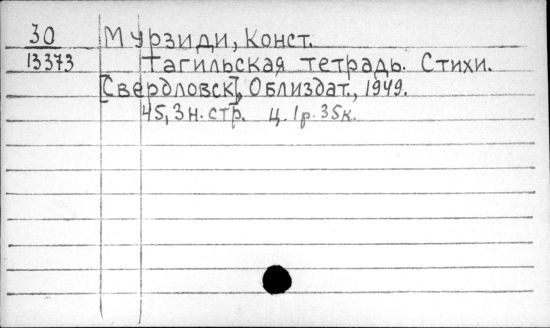 30 Мурзиди, Конст.
13373 Тагильская тетрадь. Стихи.
[Свердловск], Облиздат., 1949.
45,3 н. стр. Ц. 1 р. 35 к.